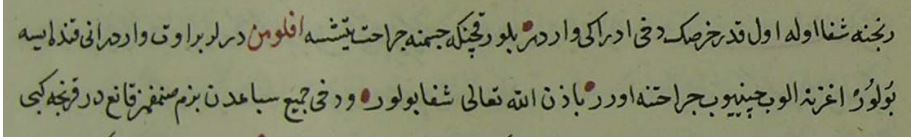 رنجنه شفا اوله اول قدر خرصك دخی ادراكی واردر بلور قچنكه جسمنه جراحت يتشسه افلومن درلر بر اوت واردر انی قنده ايسه
بولور اغزنه الوب چينيوب جراحتنه اورر باذن الله تعالی شفا بولور ودخی جميع سباعدن بزم صنفمز قانع در قرنجه كبی